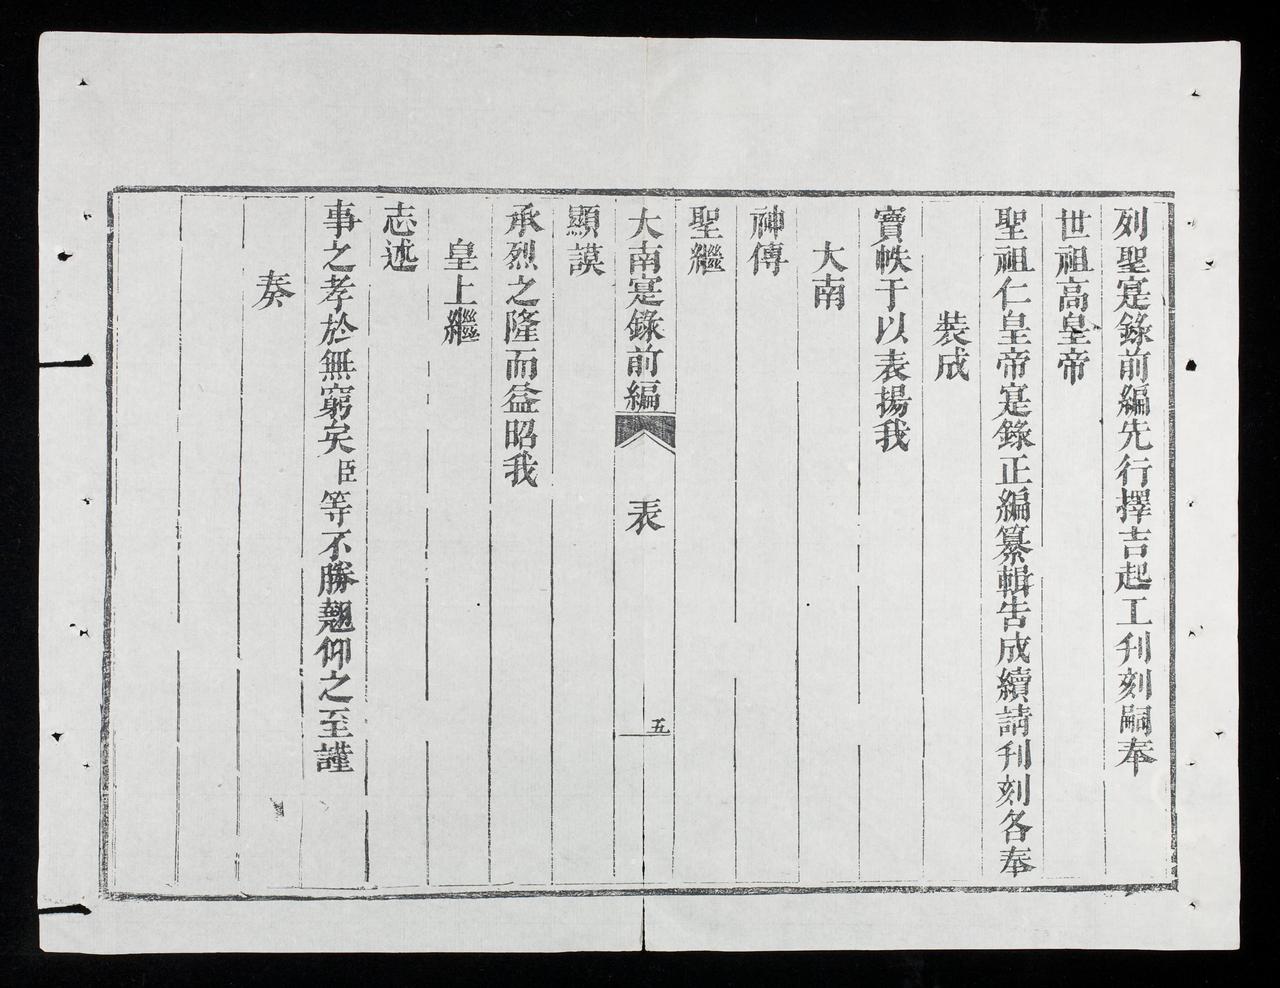 列聖寔錄前編先行擇吉起工刋刻嗣奉
世祖高皇帝
聖祖仁皇帝寔錄正編纂輯告成續請刋刻各奉
裝成
寶帙于以表揚我
大南
神傳
聖繼
大南寔錄前編 表 五
顯謨
承烈之隆而益昭我
皇上繼
志述
事之孝於無窮矣臣等不勝翹仰之至謹
奏